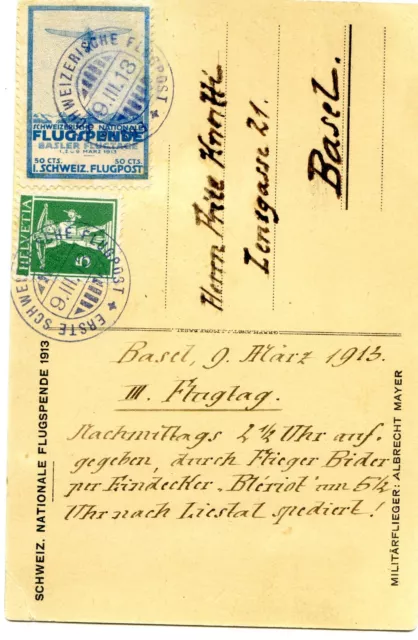 SCHWEIZERISCHE FLUGPOST
9.III.13
SCHWEIZERISCHE NATIONALE
FLUGSPENDE
BASLER FLUGTAGE
50 CTS. 50 CTS.
I. SCHWEIZ. FLUGPOST
HELVETIA
5
ERSTE SCHWEIZ
FLUGPOST
9.III.
Herrn Fritz
21.
Basel.
Basel, 9. März 1913.
III. Flugtag.
Nachmittags 2 1/2 Uhr auf-
gegeben, durch Flieger Bider
per Eindecker „Blériot" um 5 1/2
Uhr nach Liestal spediert!
SCHWEIZ. NATIONALE FLUGSPENDE 1913
MILITÄRFLIEGER: ALBRECHT MAYER